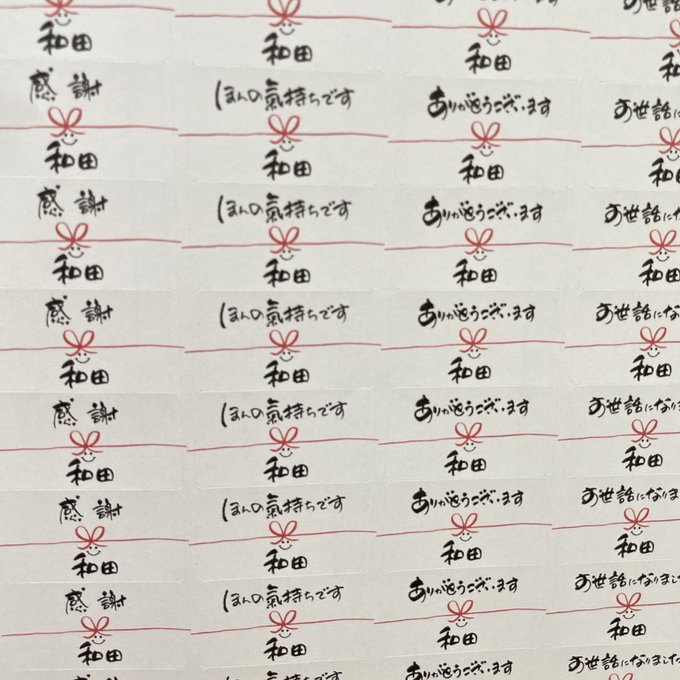 和田 和田 和田 和
感謝 ほんの氣持ちです ありがとうございます お世話に
和田 和田 和田 和
感謝 ほんの氣持ちです ありがとうございます お世話にな
和田 和田 和田 和田
感謝 ほんの氣持ちです ありがとうございます お世話にな
和田 和田 和田 和田
感謝 ほんの氣持ちです ありがとうございます お世話になりま
和田 和田 和田 和田
感謝 ほんの氣持ちです ありがとうございます お世話になりま
和田 和田 和田 和田
感謝 ほんの氣持ちです ありがとうございます お世話になりました
和田 和田 和田 和田
ほんの氣持ちです ありがとうございます お世話になりました